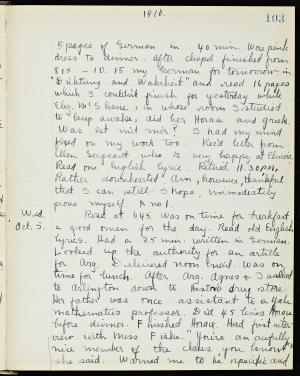 1910.
103
5 pages of German in 40 min. Wore pink
dress to dinner. After chapel finished from
8:15 - 10.15 my German for tomorrow in
"Dichtung und Wahrheit" and read 16 pages
which I couldn't finish for yesterday while
Eliz. McShane, in whose room I studied
to keep awake, did her Horace and greek.
Was ist mit mir? I had my mind
fixed on my work too. Rec'd letter from
Ellen Sergeant who is very happy at Elmira.
Read one English lyric. Retired 11.30 P.M.
Rather downhearted am, however, thankful
that I can still I hope, immediately
prove myself A no 1.
Wed.
Oct. 5.
Rose at 6:45. Was on time for breakfast,
a good omen for the day. Read old English
lyrics. Had a 25 min. written in German.
Looked up the authority for an article
for Arg. Delivered noon mail. Was on
time for lunch. After Arg. Agnes & I walked
to Arlington down to drug store.
Her father was once assistant to a Yale
mathematics professor. Did 45 lines Horace
before dinner. Finished Horace. Had first inter
view with Miss Fiske. "You're an awfully
nice member of the class you know"
she said. Warned me to be specific and